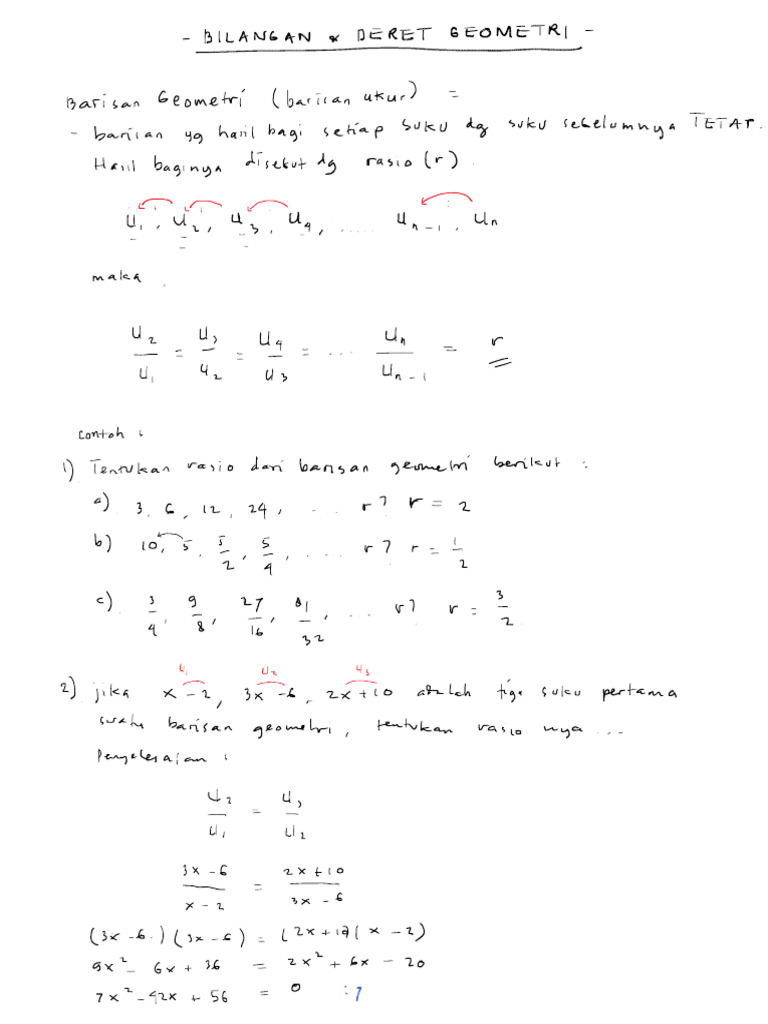 - BILANGAN & DERET GEOMETRI -
Barisan Geometri (barisan ukur) =
- barisan yg hasil bagi setiap suku dg suku sebelumnya TETAP.
Hasil baginya disebut dg rasio (r).
U₁, U₂, U₃, U₄, ..... Uₙ₋₁, Uₙ
maka
U₂/U₁ = U₃/U₂ = U₄/U₃ = ... Uₙ/Uₙ₋₁ = r
Contoh :
1) Tentukan rasio dari barisan geometri berikut :
a) 3, 6, 12, 24, ... r? r = 2
b) 10, 5, 5/2, 5/4, .... r? r = 1/2
c) 3/4, 9/8, 27/16, 81/32, ... r? r = 3/2
U₁ U₂ U₃
2) jika x-2, 3x-6, 2x+10 adalah tiga suku pertama
suatu barisan geometri, tentukan rasio nya ...
Penyelesaian :
U₂/U₁ = U₃/U₂
3x-6/x-2 = 2x+10/3x-6
(3x-6)(3x-6) = (2x+10)(x-2)
9x² - 6x + 36 = 2x² + 6x - 20
7x² - 42x + 56 = 0 :7